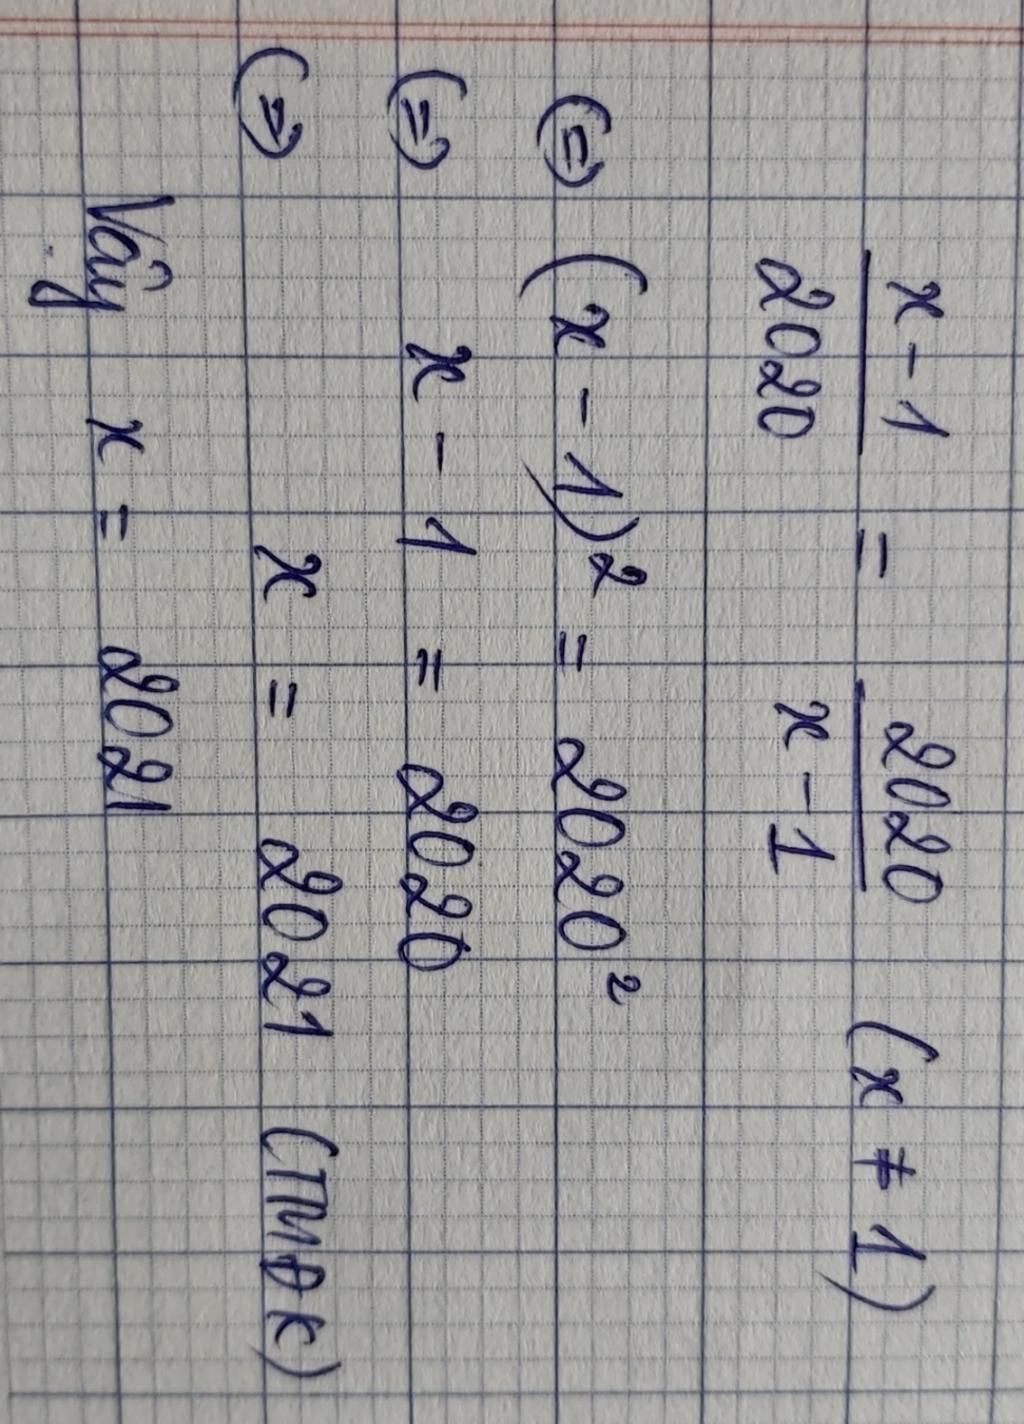 x - 1 / 2020 = 2020 / x - 1 (x ≠ 1)
(=) (x - 1)² = 2020²
(=) x - 1 = 2020
(=) x = 2021 (TMĐK)
Vậy x = 2021